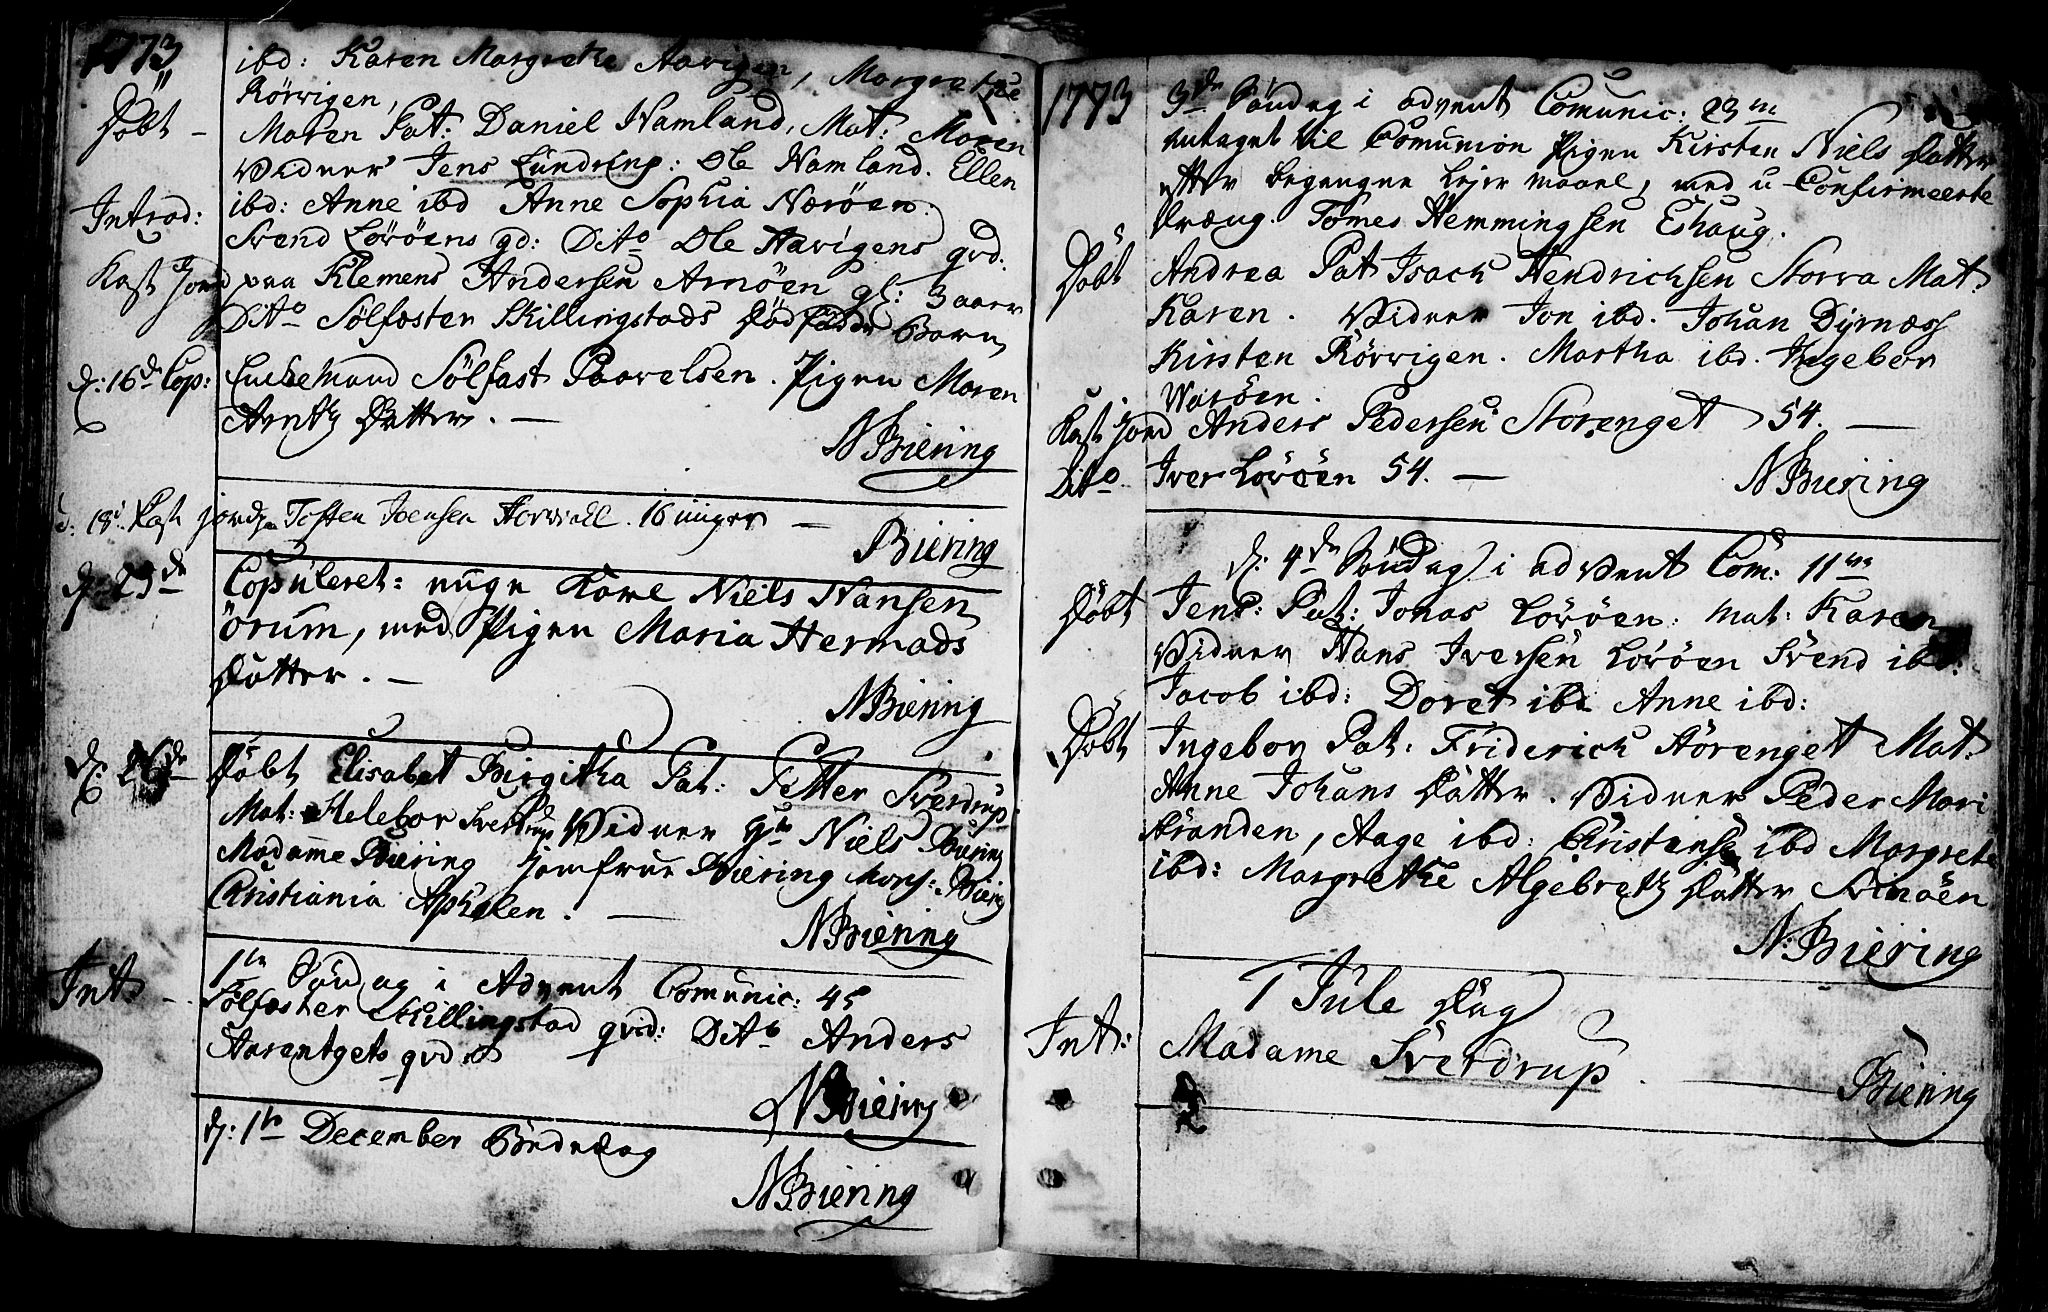 1773
ibd: Karen Margrethe Aavigen, Margrethe
Rörvigen,
Döbt - Maren Pat: Daniel Hamland, Mat: Maren
Vidner Jens Lundring: Ole Hamland. Ellen
ibd: Anne ibd Anne Sophia Næröen.
Introd: Svend Lövöens qd: Dito Ole Aavigens qvd:
Kast Jord paa Klemens Andersen Arnöen gl: 3 aar
Dito Sölfæster Skillingstads Dödfödde Barn
d: 16de Cop: Enckemand Sölfast Paavelsen. Pigen Maren
Arntz Datter. -
NBiering
d. 18de Kast jord p. Tosten Joensen 16 uuger -
Biering
d: 23de Copuleret: unge Karl Niels Hansen
Örum, med Pigen Maria Hermads
Datter. -
NBiering
d: 26de Döbt Elisabet Birgitha Pat: Petter Sverdrup
Mat: Helebor Sverdrup Vidner Hr Niels Biering
Madame Biering Jomfrue Biering Mons: Biering
Christiania Ashelen. -
NBiering
1te Söndag i Advent Comunic: 45
Int: Sölfæster Skillingstad qvd: Dito Anders
Aarentgets qvd
NBiering
d: 1te December Bededag
NBiering
1773
3de Söndag i advent Comunic: 23me
antaget til Comunion Pigen Kirsten Niels Datter
efter begangne Lejer maael, med u-Confirmeerte
Dræng. Tomes Hemmingsen Eshaug.
Döbt Andrea Pat Isach Hendrichsen Storra Mat.
Karen. Vidner Jon ibd. Johan Dyrnæss
Kirsten Rörvigen. Martha ibd. Ingebor
Waröen.
Kast Jord Anders Pedersen Storenget 54. -
Dito Iver Lövöen 54. -
NBiering
d: 4de Söndag i advent Com: 11me
Döbt Jens: Pat: Jonas Lövöen: Mat: Karen
Vidner Hans Iversen Lövöen Svend ibd:
Jacob ibd: Doret ibd Anne ibd:
Döbt Ingebor Pat: Friderich Aörenget Mat:
Anne Johans Datter. Vidner Peder Mari
Stranden, Aage ibd: Christense ibd Margrete
ibd: Margrethe Algebretz Datter Svinöen
N:Biering
1 Jule Dag
Int: Madame Sverdrup. -
Biering